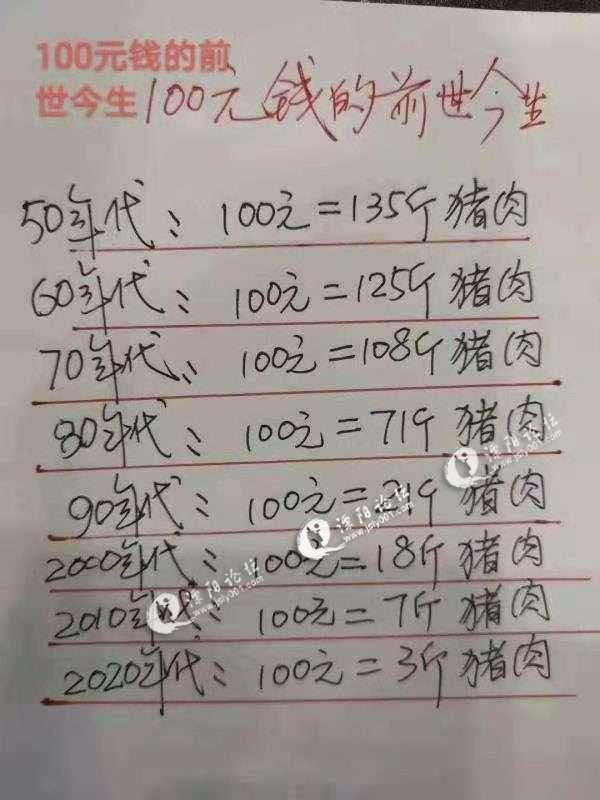 100元钱的前
世今生
100元钱的前世今生
50年代: 100元=135斤猪肉
60年代: 100元=125斤猪肉
70年代: 100元=108斤猪肉
80年代: 100元=71斤猪肉
90年代: 100元=21斤猪肉
2000年代: 100元=18斤猪肉
2010年代: 100元=7斤猪肉
2020年代: 100元=3斤猪肉
溧阳论坛
www.jsly001.com
溧阳论坛
www.jsly001.com
溧阳论坛
www.jsly001.com